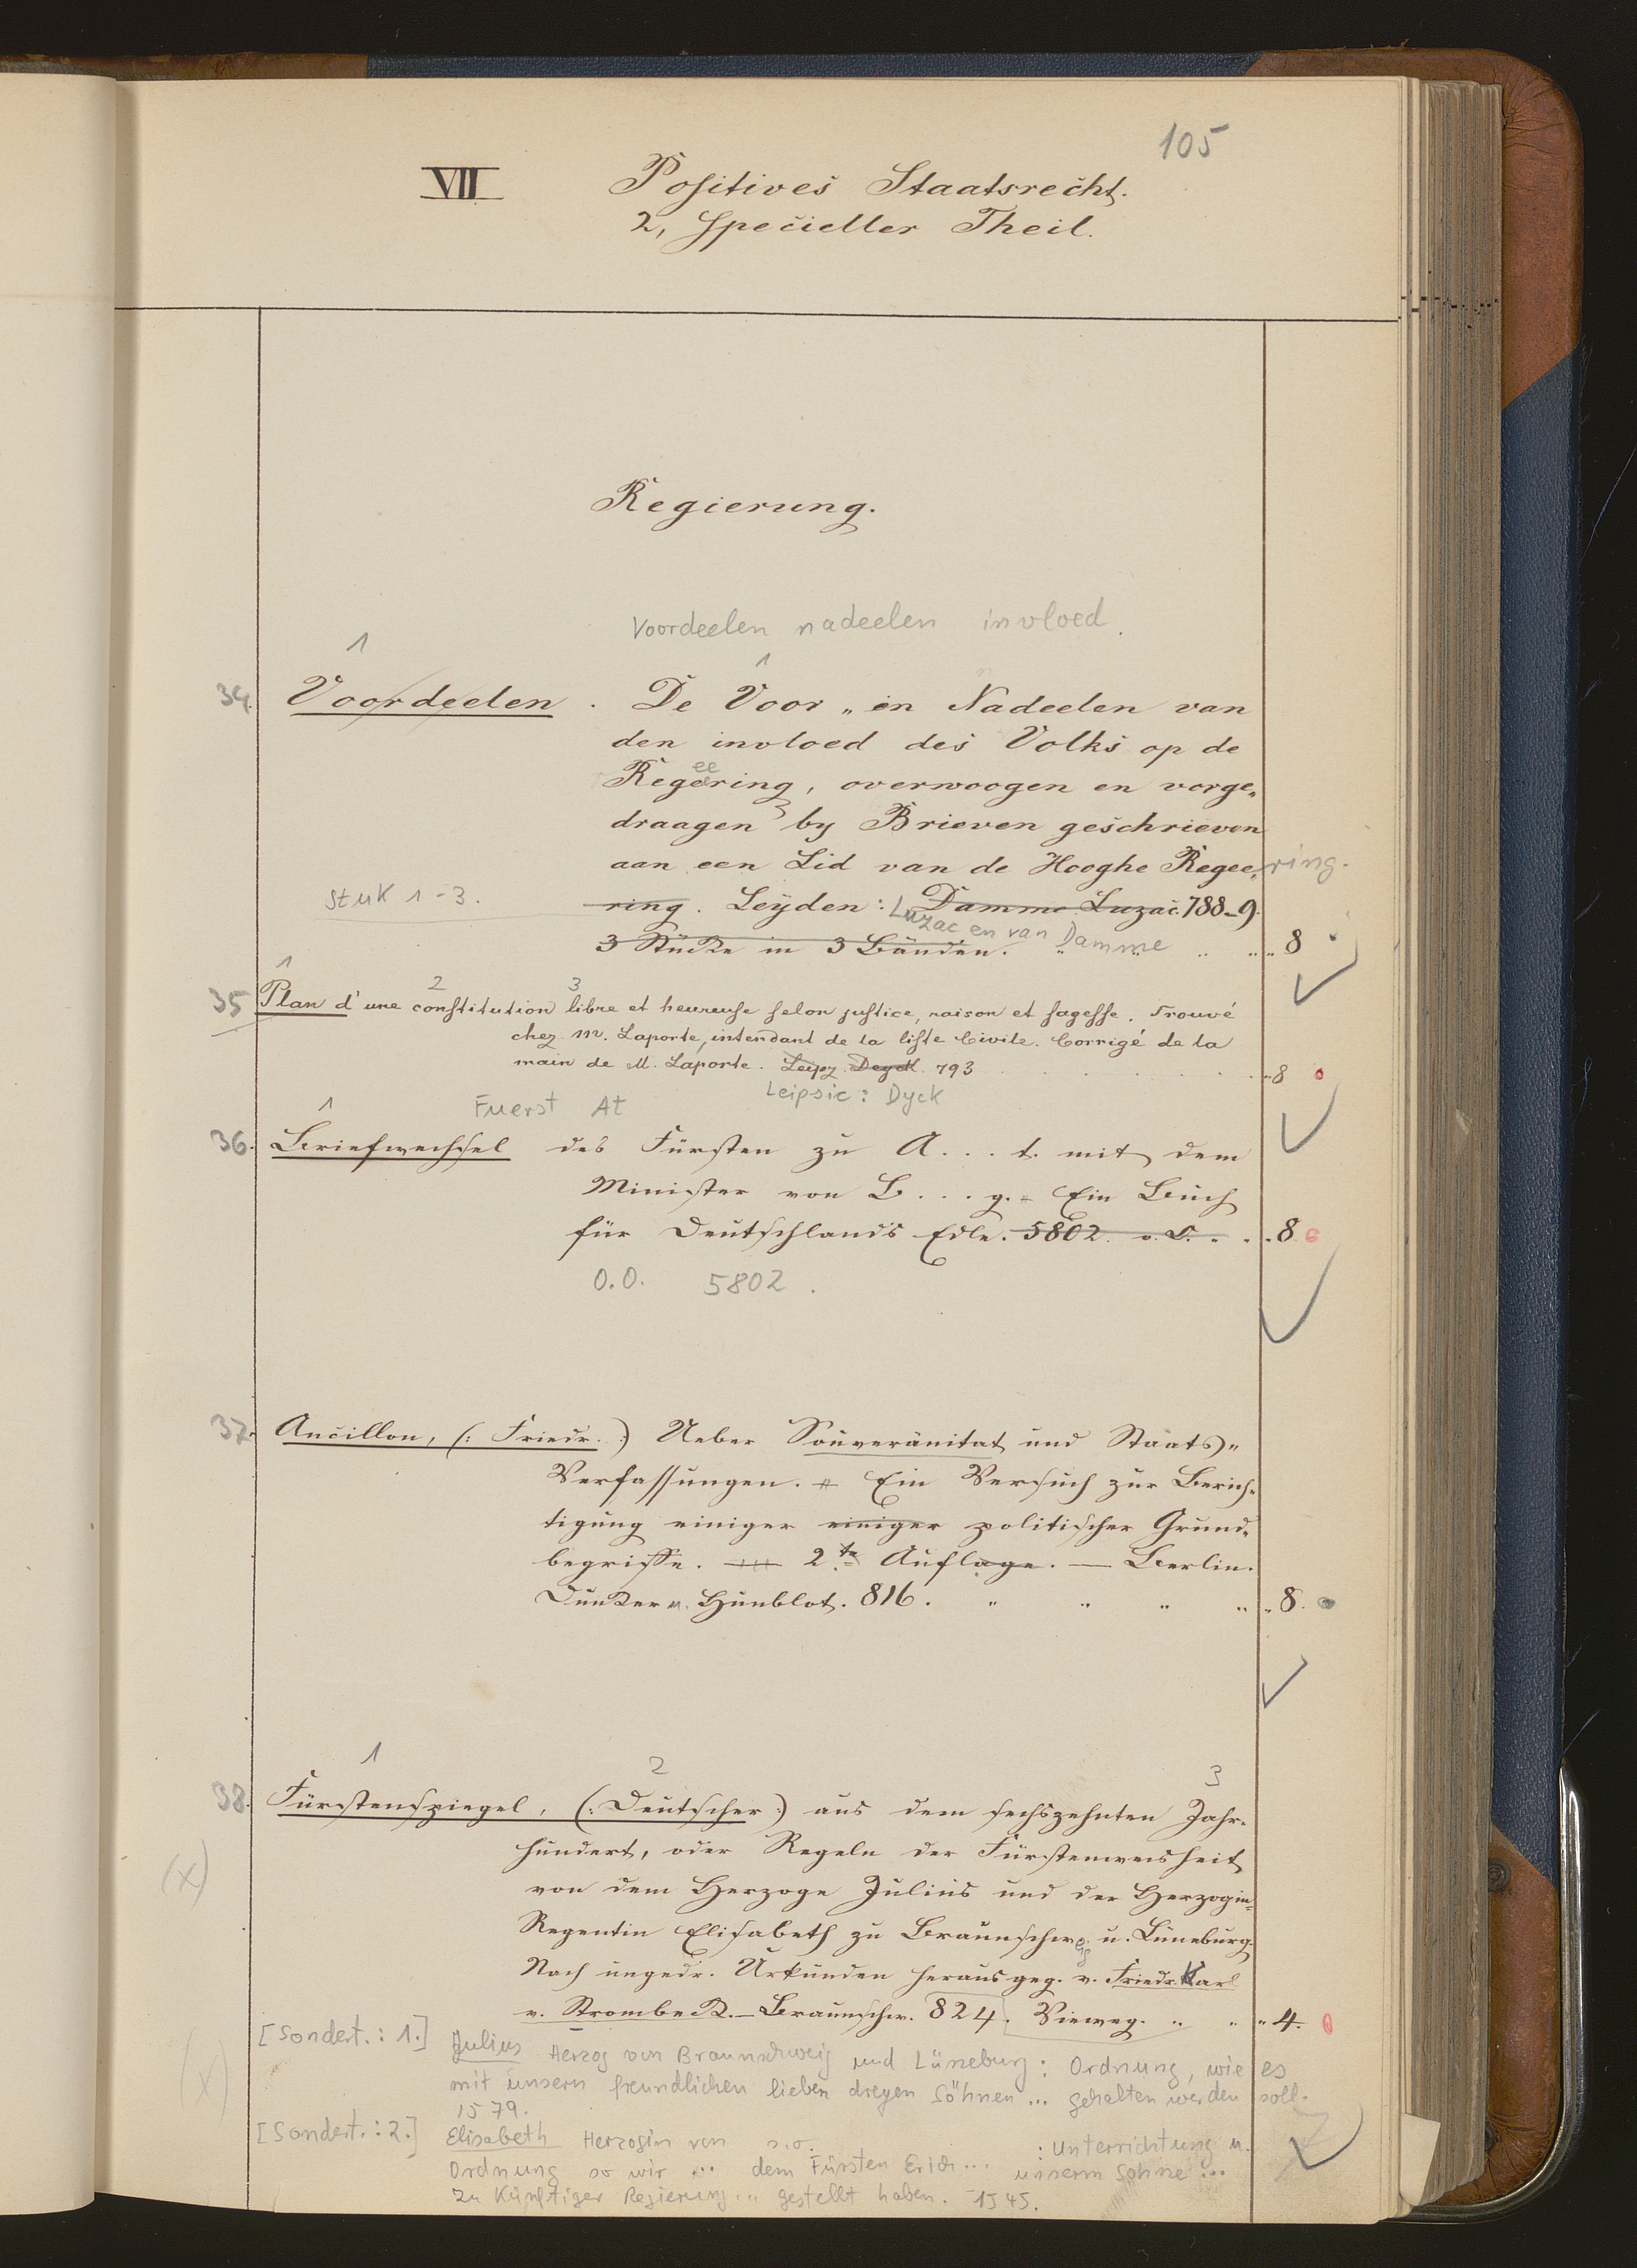 105
VII Positives Staatsrecht.
2, Specieller Theil.
Regierung.
Voordeelen nadeelen invloed.
1 1
34. Voordeelen. De Voor„ en Nadeelen van
den invloed des Volks op de
Regeering, overwoogen en vorge„
draagen by Brieven geschrieven
aan een Lid van de Hooghe Regee„ring.
Stuk 1-3. ring. Leyden: Damme Luzac. 788-9.
Luzac en van Damme
3 Stücke in 3 Bänden. „ „ „ 8
1 2 3
35 Plan d'une constitution libre et heureuse selon justice, raison et sagesse. Trouvé
chez M. Laporte, intendant de la liste Civile. Corrigé de la
main de M. Laporte. Leipz. Deyck. 793 . . . . „8
Leipsic: Dyck
1 Fuerst At
36. Briefwechsel des Fürsten zu A...t. mit dem
Minister von B...g. Ein Buch
für Deutschlands Edle. 5802. o. O. „ „ 8
O.O. 5802.
37. Ancillon, (: Friedr. :) Ueber Souveränitat und Staats„
Verfassungen. Ein Versuch zur Berich„
tigung einiger einiger politischer Grund„
begriffe. 2te Auflage. — Berlin.
Dunker u. Humblot. 816. „ „ „ „ 8.
1 2 3
38. Fürstenspiegel, (: Deutscher :) aus dem sechszehnten Jahr„
hundert, oder Regeln der Fürstenweisheit
(x) von dem Herzoge Julius und der Herzogin„
Regentin Elisabeth zu Braunschweig u. Lüneburg.
Nach ungedr. Urkunden herausgeg. v. Friedr. Karl
v. Strombeck. — Braunschw. 824. Vieweg. „ „ 4.
[Sondert.: 1.] Julius Herzog von Braunschweig und Lüneburg: Ordnung, wie es
(x) mit unsern freundlichen lieben dreyen Söhnen ... gehalten werden soll.
1579.
[Sondert.: 2.] Elisabeth Herzogin von s.o. : Unterrichtung u.
Ordnung so wir ... dem Fürsten Erich ... unserm Sohne ...
zu künftiger Regierung ... gestellt haben. 1545.